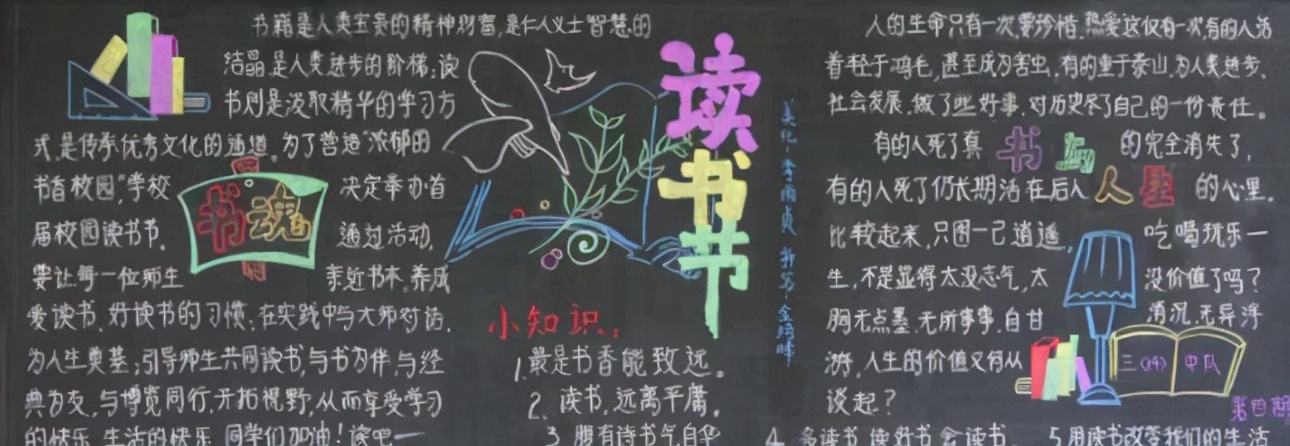 书籍是人类宝贵的精神财富,是仁人义士智慧的
结晶,是人类进步的阶梯;读
书则是汲取精华的学习方
式,是传承优秀文化的通道。为了营造“浓郁的
书香校园”,学校
决定举办首
届校园读书节。
通过活动,
要让每一位师生
亲近书本,养成
爱读书、好读书的习惯;在实践中与大师对话,
为人生奠基;引导师生共同读书,与书为伴,与经
典为友,与博览同行,开拓视野,从而享受学习
的快乐、生活的快乐,同学们加油!读吧一
书魂
读书节
小知识:
1.最是书香能致远。
2.读书,远离平庸。
3.腹有诗书气自华
4.多读书 读好书 会读书
5.用读书改变我们的生活
人的生命只有一次,要珍惜、热爱这仅有一次,有的人活
着轻于鸿毛,甚至成为害虫,有的重于泰山,为人类进步、
社会发展,做了些好事,对历史尽了自己的一份责任。
有的人死了真
的完全消失了,
书与
有的人死了仍长期活在后人
的心里。
人生
比较起来,只图一己逍遥,
吃喝玩乐一
生,不是显得太没志气,太
没价值了吗?
胸无点墨,无所事事,自甘
消沉,无异浮
游,人生的价值又何从
谈起?
三(14)中队
第四期